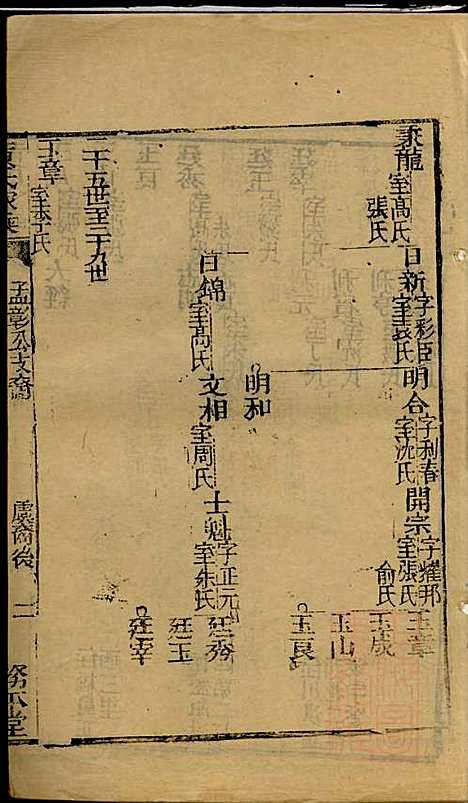 秉龍 室髙氏 張氏
日新 字彩臣 室袁氏
明合 字利春 室沈氏
開宗 字耀邦 室張氏 俞氏
玉章
玉成
玉山
玉良
明和
日錦 室髙氏
文相 室周氏
士魁 字正元 室朱氏
廷秀
廷玉
廷幸
二十五世至二十九世
玉章 室李氏
孟彰公支裔
虞裔後 二